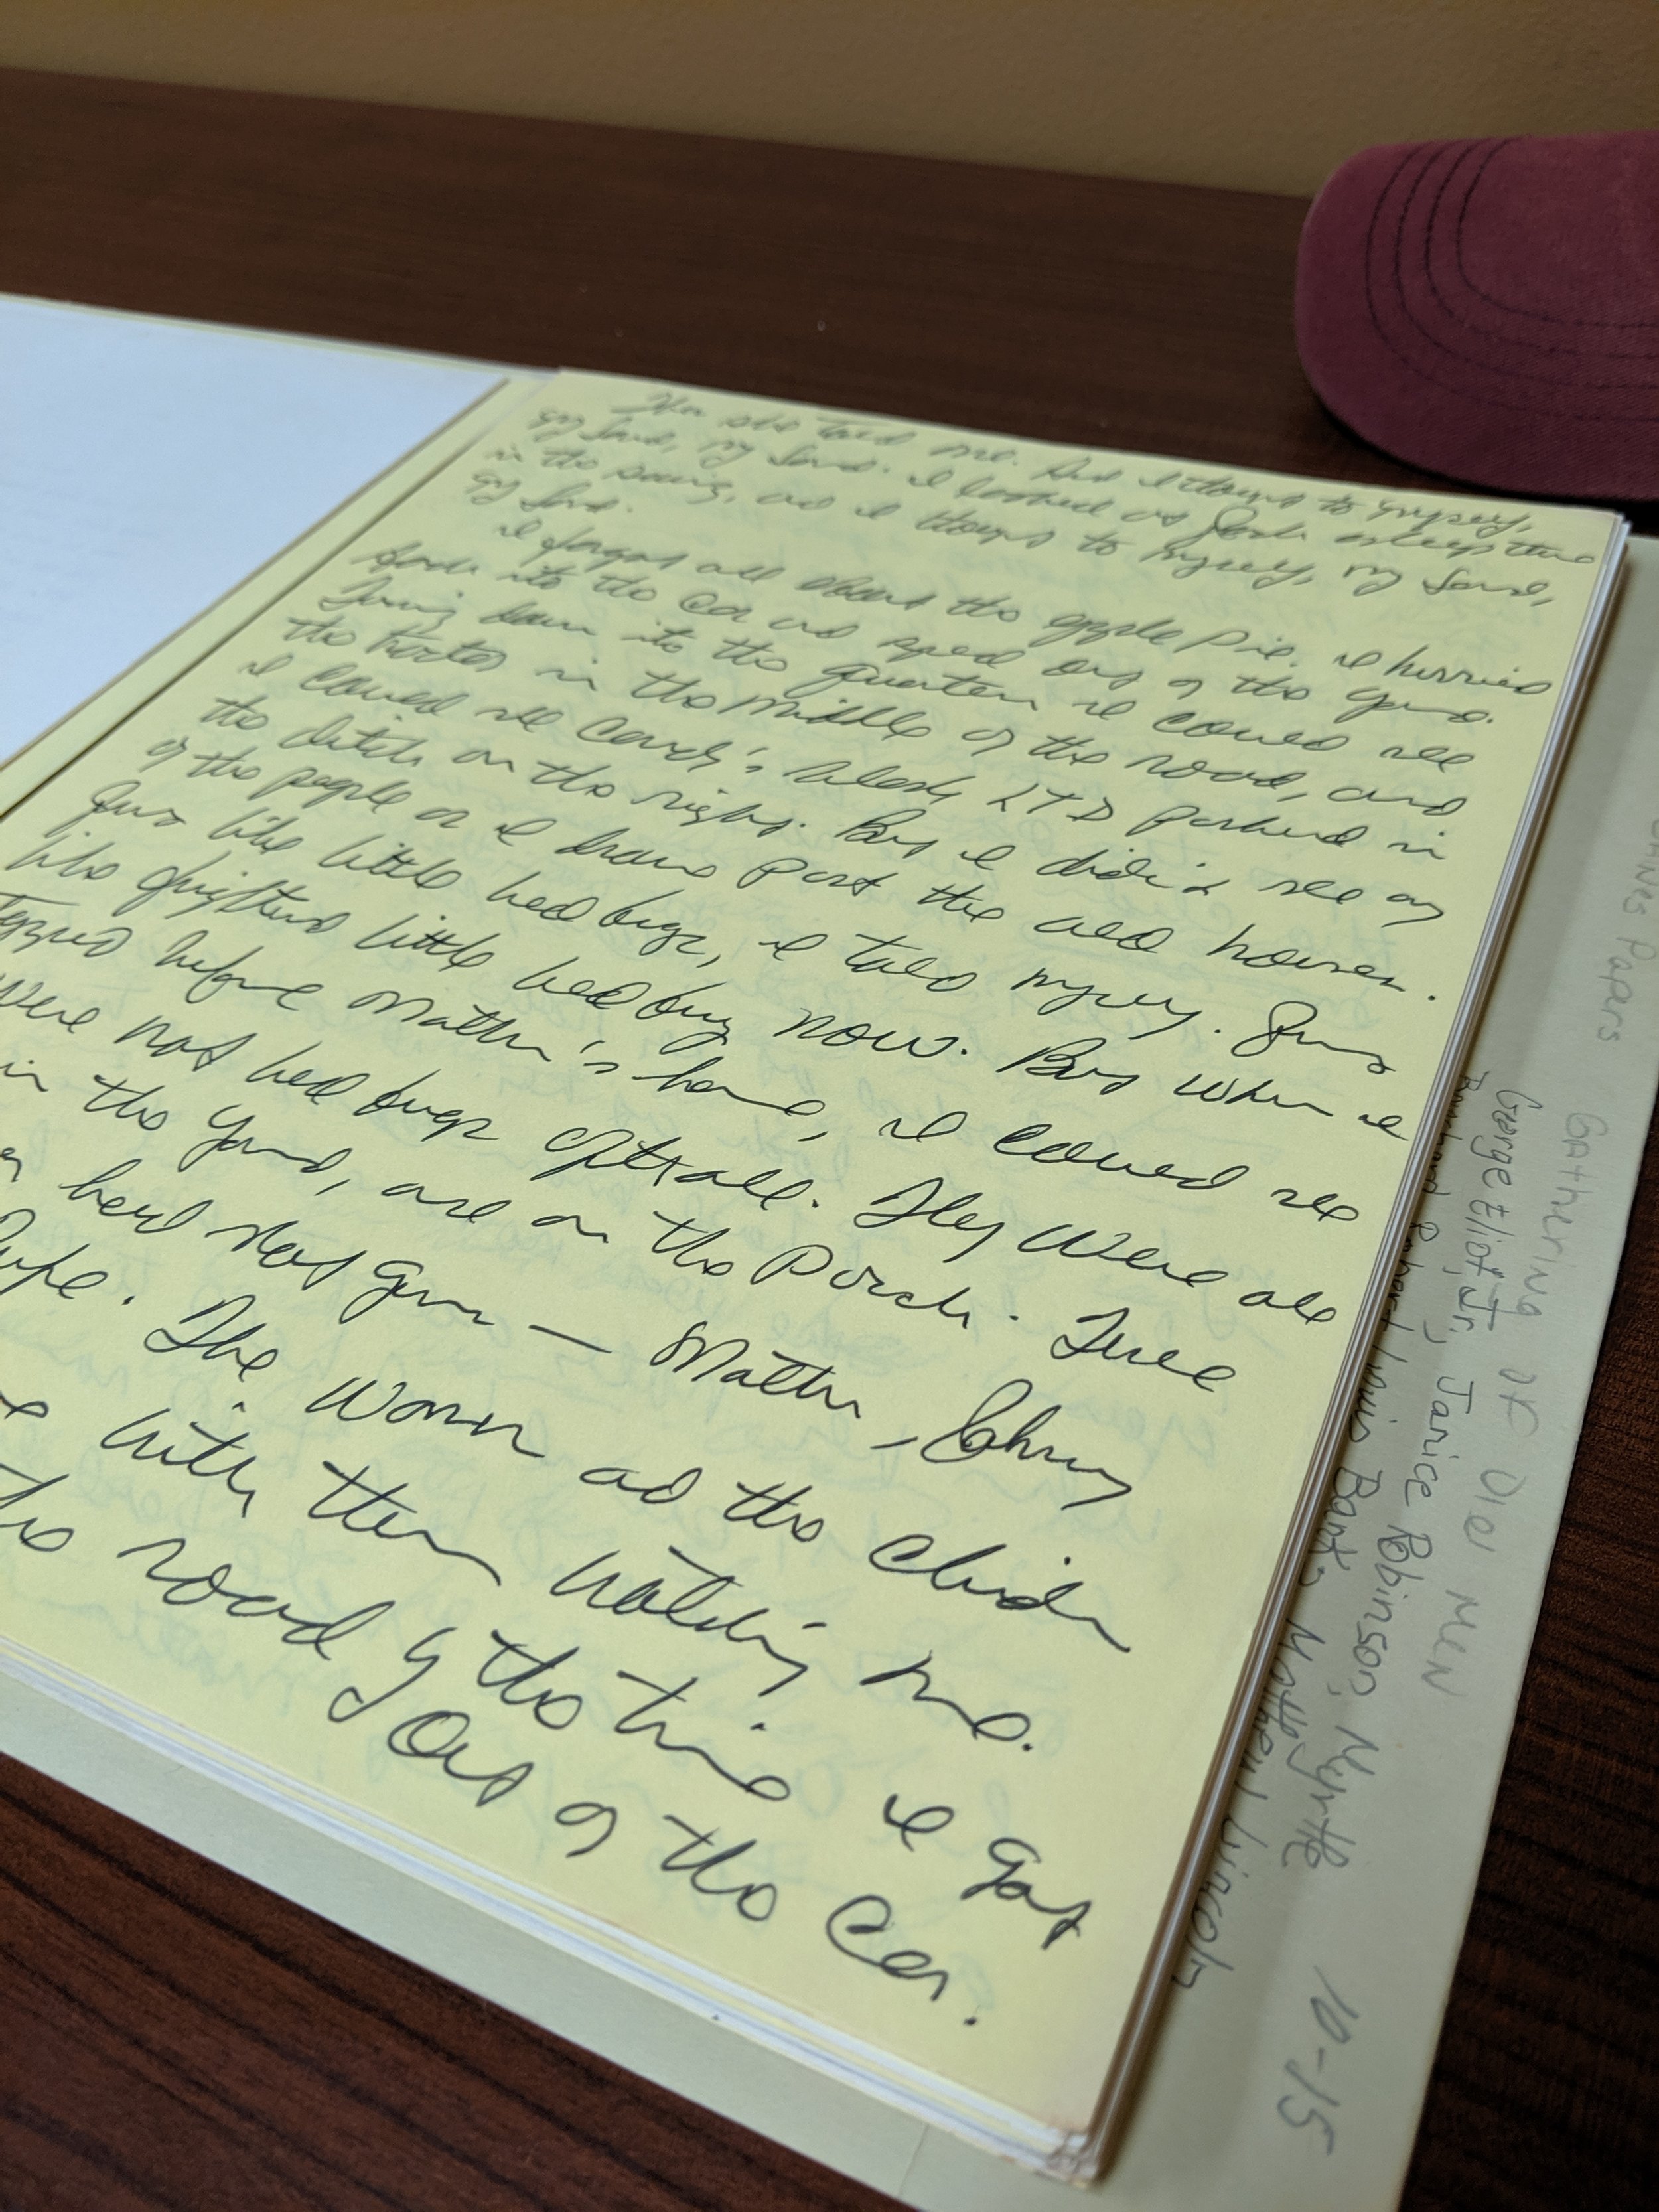 Then she told me. And I thought to myself,
my Lord, my Lord. I looked at Jack asleep there
in the swing, and I thought to myself, my Lord,
my Lord.
I forgot all about the apple pie. I hurried
back into the car and sped out of the yard.
Turning down into the quarters I could see
the tractor in the middle of the road, and
I could see Candy's black LTD parked in
the ditch on the right. But I didn't see any
of the people as I drove past the old houses.
Just like little bedbugs, I told myself. Just
like frightened little bedbug now. But when I
stopped before Mathu's house, I could see
were not bedbugs after all. They were all
in the yard, are on the porch. Three
had shot guns — Mathu, Johnny
Rufe. The women and the children
with them watching me.
the road by the time I got
out of the car.
Gaines Papers
Gathering of Old Men
George Eliot, Jr., Janice Robinson, Myrtle
Bouchard, Robert Louis Banks, Matthew Lincoln
10-15